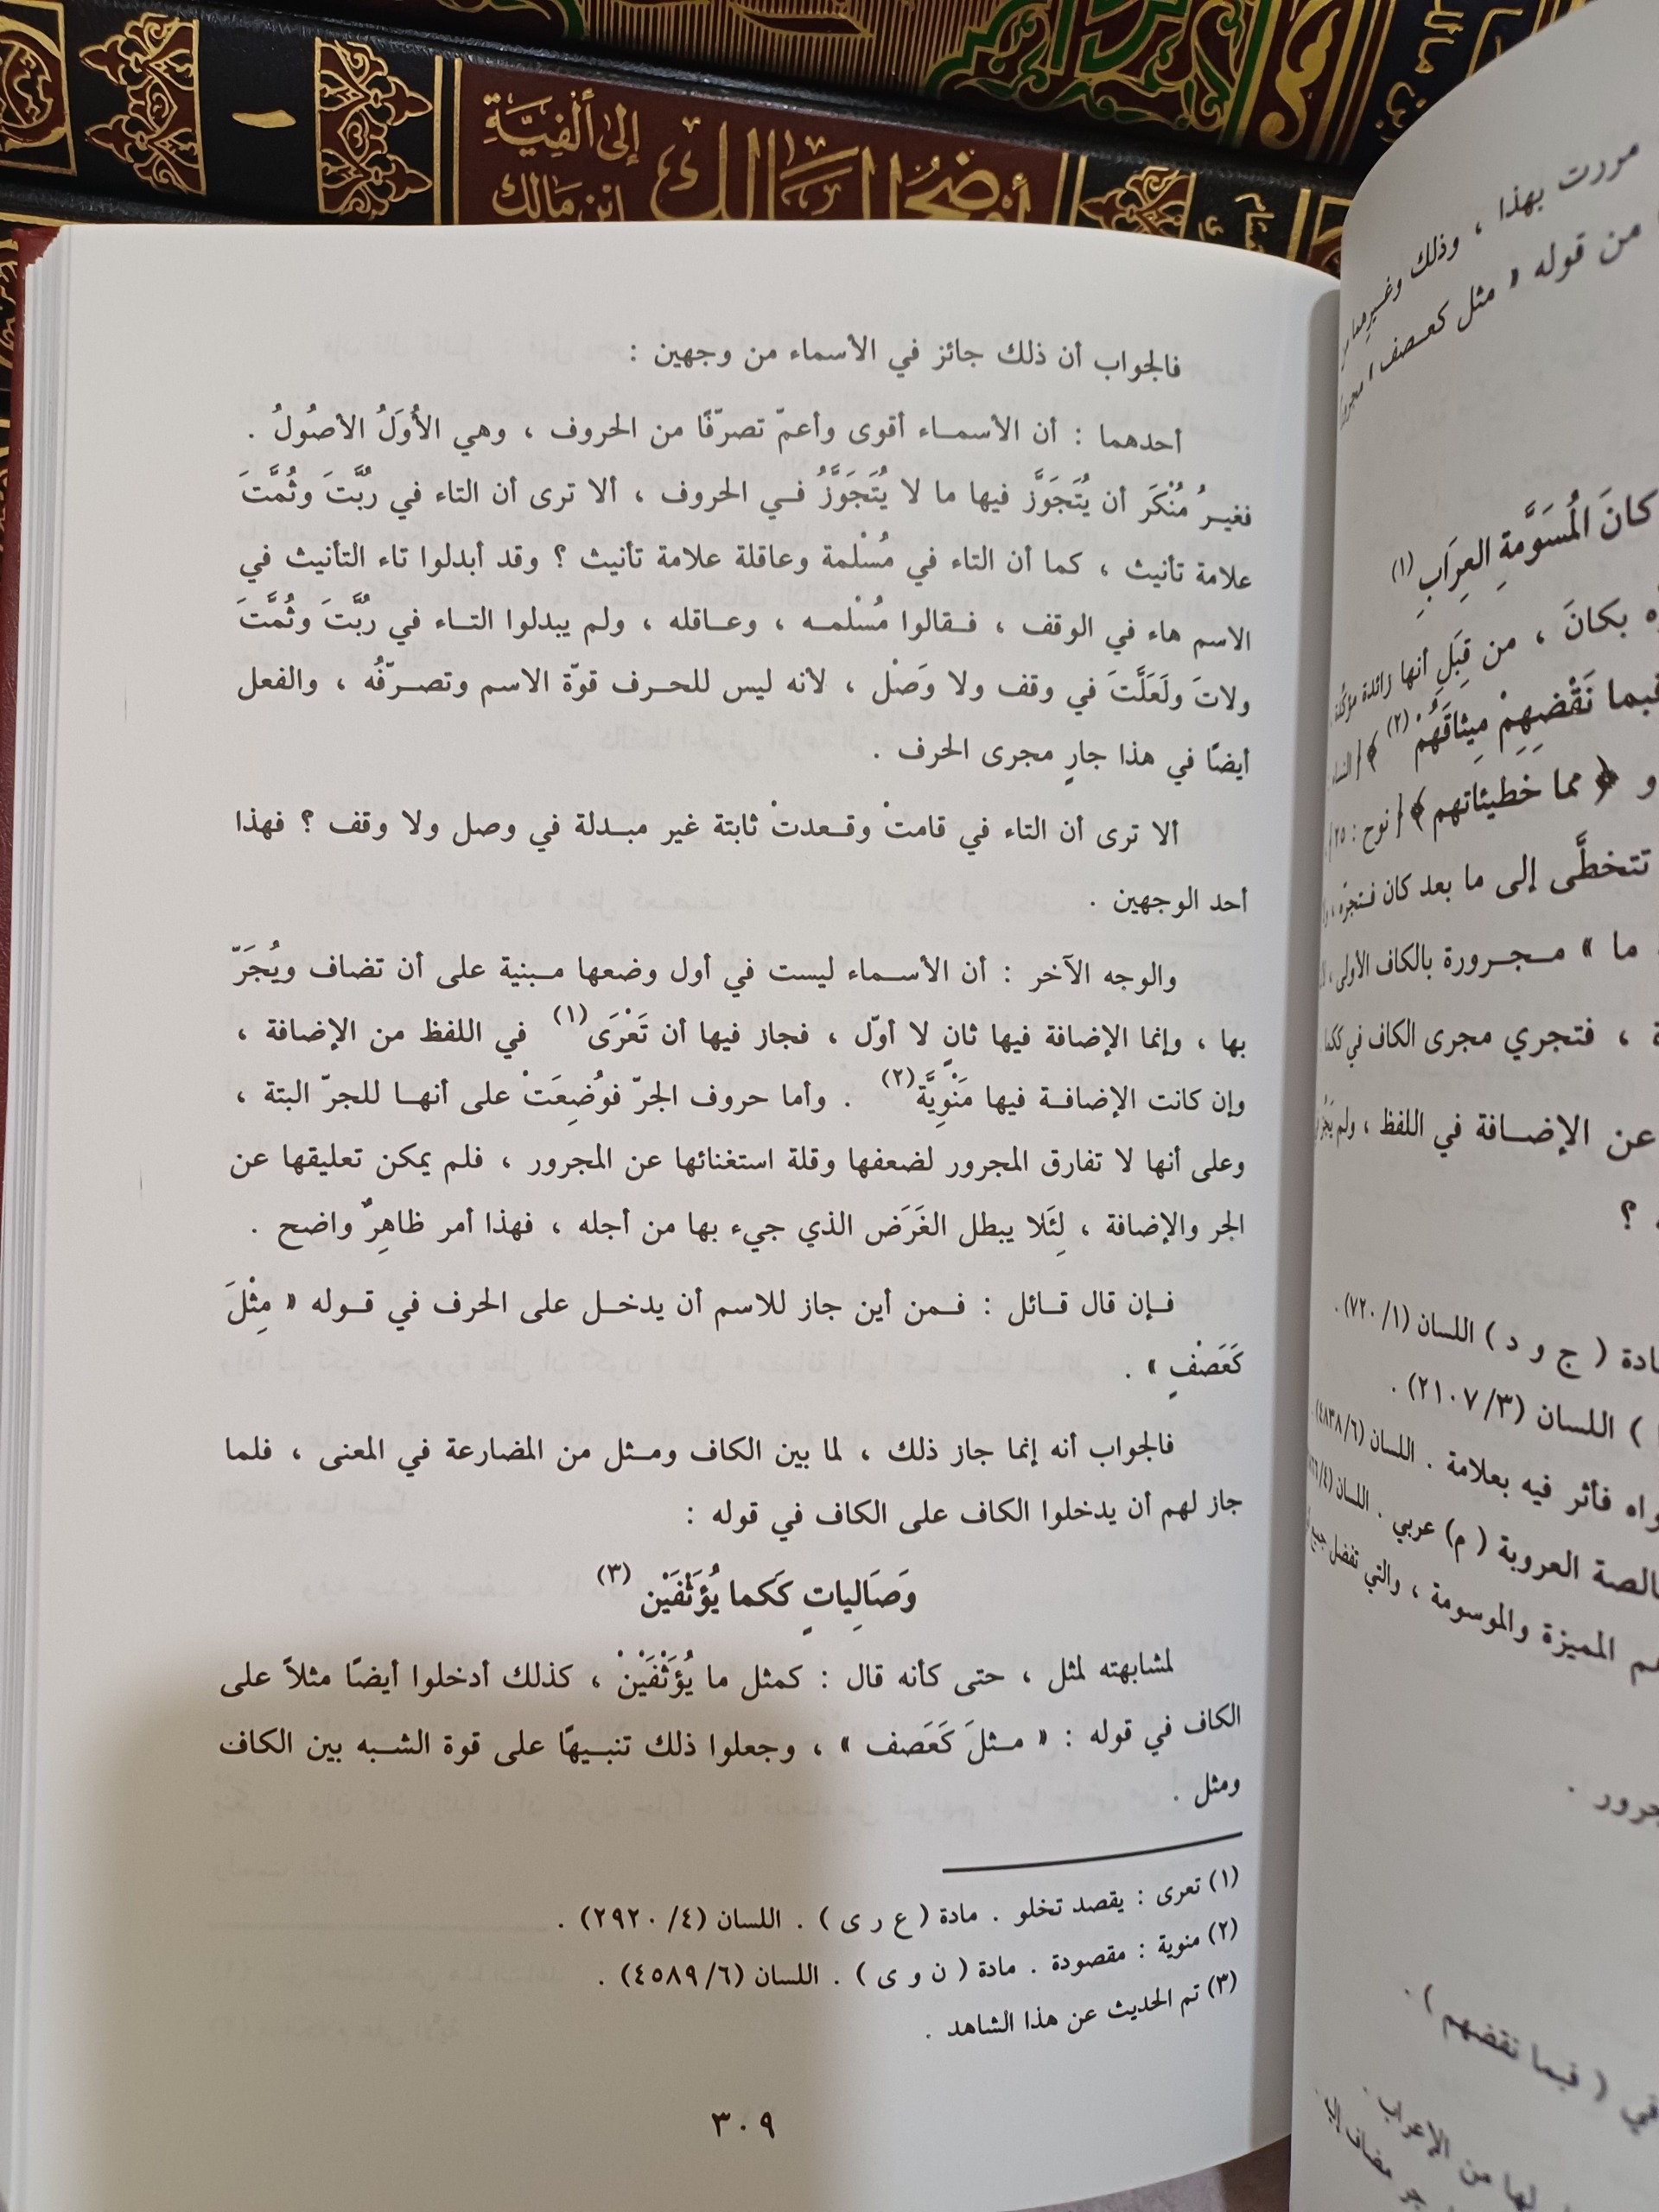 إلى ألفية
ابن مالك
أوضح المسالك
١
فالجواب أن ذلك جائز في الأسماء من وجهين :
أحدهما : أن الأسمـاء أقوى وأعمّ تصرّفًا من الحروف ، وهي الأُوَلُ الأصُولُ .
فغيـرُ مُنْكَر أن يُتَجَوَّز فيها ما لا يُتَجَوَّزُ فـي الحروف ، ألا ترى أن التاء في رُبَّتَ وثُمَّتَ
علامة تأنيث ، كما أن التاء في مُسْلمة وعاقلة علامة تأنيث ؟ وقد أبدلوا تاء التأنيث في
الاسم هاء في الوقف ، فـقالوا مُسْلمـه ، وعـاقله ، ولم يبدلوا التـاء في رُبَّتَ وثُمَّتَ
ولاتَ ولَعَلَّتَ في وقف ولا وَصْل ، لأنه ليس للحـرف قوّة الاسم وتصـرّفُه ، والفعل
أيضًا في هذا جارٍ مجرى الحرف .
ألا ترى أن التاء في قامتْ وقـعدتْ ثابتة غير مبـدلة في وصل ولا وقف ؟ فهذا
أحد الوجهين .
والوجه الآخر : أن الأسـماء ليست في أول وضعها مـبنية على أن تضاف ويُجَرّ
بها ، وإنما الإضافة فيها ثانٍ لا أوّل ، فجاز فيها أن تَعْرَى(١) في اللفظ من الإضافة ،
وإن كانت الإضافـة فيها مَنْوِيَّة(٢) . وأما حروف الجرّ فوُضِعَتْ على أنهـا للجرّ البتة ،
وعلى أنها لا تفارق المجرور لضعفها وقلة استغنائها عن المجرور ، فلم يمكن تعليقها عن
الجر والإضافة ، لِئَلا يبطل الغَرَض الذي جيء بها من أجله ، فهذا أمر ظاهِرٌ واضح .
فـإن قال قـائل : فـمن أين جاز للاسم أن يدخـل على الحرف في قـوله « مِثْلَ
كَعَصْفٍ » .
فالجواب أنه إنما جاز ذلك ، لما بين الكاف ومـثل من المضارعة في المعنى ، فلما
جاز لهم أن يدخلوا الكاف على الكاف في قوله :
وَصَالِياتٍ كَكما يُؤَثْفَيْن (٣)
لمشابهته لمثل ، حتى كأنه قال : كمثل ما يُؤَثْفَيْنْ ، كذلك أدخلوا أيضًا مثلاً على
الكاف في قوله : « مـثلَ كَعَصف » ، وجعلوا ذلك تنبـيهًا على قوة الشـبه بين الكاف
ومثل .
(١) تعرى : يقصد تخلو . مادة ( ع ر ى ) . اللسان (٤/ ٢٩٢٠) .
(٢) منوية : مقصودة . مادة ( ن و ى ) . اللسان (٦/ ٤٥٨٩) .
(٣) تم الحديث عن هذا الشاهد .
٣٠٩
مررت بهذا ، وذلك وغير
من قوله « مثل كعـصف
كانَ المُسَوَّمةِ العِرَابِ (١)
بكانَ ، من قِبَلِ أنها زائدة مؤكدة
فبما نَقْضِهِمْ مِيثاقَهُمْ (٢) ﴾ [النساء
و ﴿ مما خَطيئاتهم ﴾ [نوح : ٢٥]
تتخطَّى إلى ما بعد كان فـتجرّه
ما » مـجـرورة بالكاف الأولى
، فتجري مجرى الكاف في ككما
عن الإضـافة في اللفظ ، ولم
؟
ادة ( ج و د ) اللسان (١/ ٧٢٠) .
) اللسان (٣/ ٢١٠٧) .
واه فأثر فيه بعلامة . اللسان (٦/ ٤٨٣٨)
الصة العروبة ( م ) عربي . اللسان
م المميزة والموسومة ، والتي تفضل جميع
جرور .
في ( فبما نقضهم ) .
لها من الإعراب .